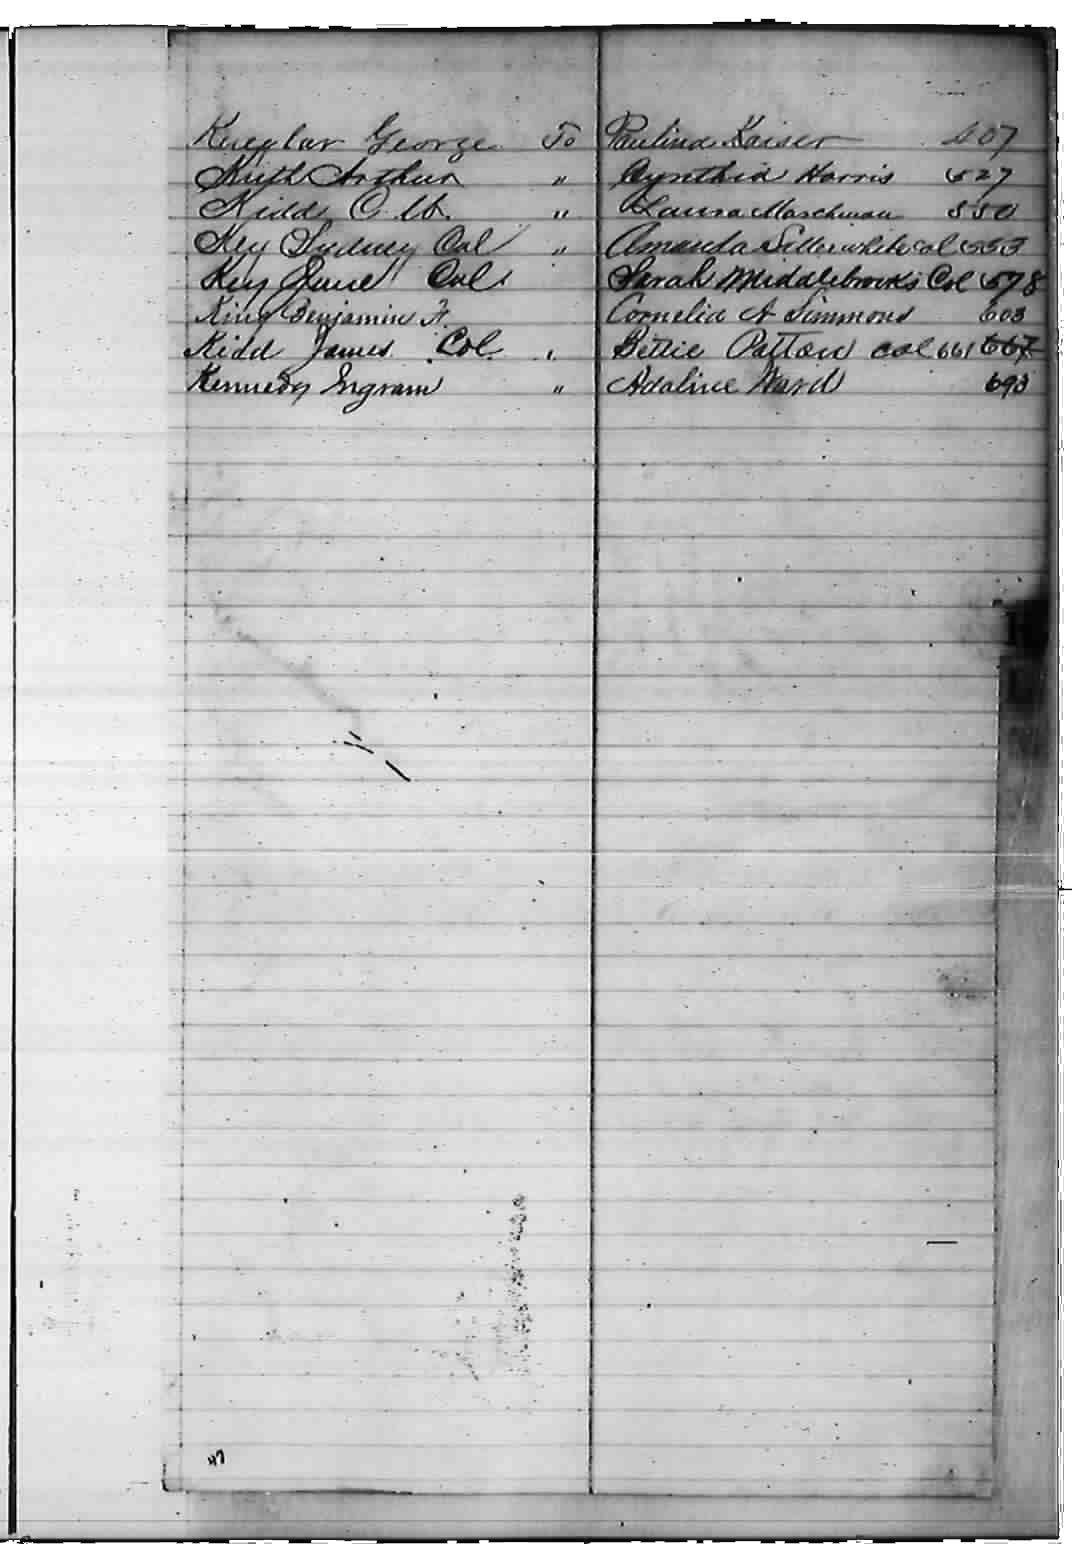 George To Paulina Kaiser 507
Keith Arthur " Cynthia Harris 527
Kidd " Laura 550
Key Sydney Col " Amanda Satterwhite Col 553
Key Col Sarah Middlebrooks Col 578
King Benjamin F. Cornelia A Simmons 603
Kidd James Col " Bettie Patton Col 661 667
Kennedy Ingram " Adaline Ward 693